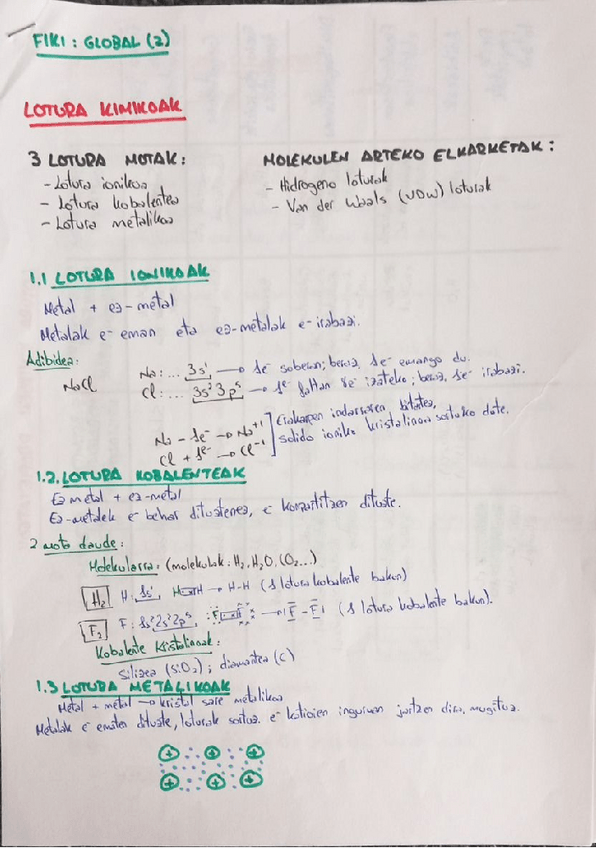 FIKI : GLOBAL (2)
LOTURA KIMIKOAK
3 LOTURA MOTAK :
- Lotura ionikoa
- Lotura kobalentea
- Lotura metalikoa
MOLEKULEN ARTEKO ELKARKETAK :
- Hidrogeno loturak
- Van der Waals (VDW) loturak
1.1 LOTURA IONIKOAK
Metal + ez-metal
Metalak e⁻ eman eta ez-metalak e⁻ irabazi.
Adibidea:
NaCl
Na: ... 3s¹ → 1e⁻ soberan; beraz, 1e⁻ emango du.
Cl: ... 3s²3p⁵ → 1e⁻ faltan 8e⁻ izateko; beraz, 1e⁻ irabazi.
Na - 1e⁻ → Na⁺¹
Cl + 1e⁻ → Cl⁻¹
Erakarpen indarraren bitartez,
solido ioniko kristalinoa sortuko dute.
1.2. LOTURA KOBALENTEAK
Ez metal + ez-metal
Ez-metalek e⁻ behar dituztenez, e⁻ konpartitzen dituzte.
2 mota daude:
Molekularra: (molekulak: H₂, H₂O, CO₂...)
H₂ H: 1s¹, H H → H-H (1 lotura kobalente bakun)
F₂ F: 1s²2s²2p⁵, F F → F - F (1 lotura kobalente bakun).
Kobalente Kristalinoak:
Silizea (SiO₂); diamantea (C)
1.3 LOTURA METALIKOAK
Metal + metal → kristal sare metalikoa
Metalak e⁻ ematen dituzte, loturak sortuz. e⁻ katioien inguruan jartzen dira, mugituz.
+ + +
+ + +